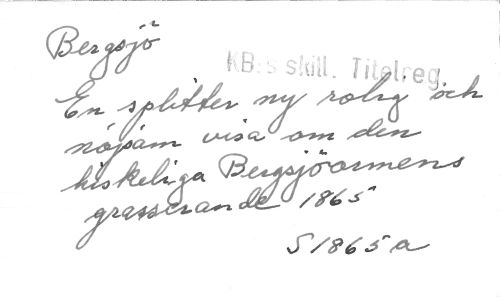 Bergsjö
KB:s skill. Titelreg.
En splitter ny rolig och
nöjsam visa om den
hiskeliga Bergsjöormens
grasserande 1865
S 1865 a